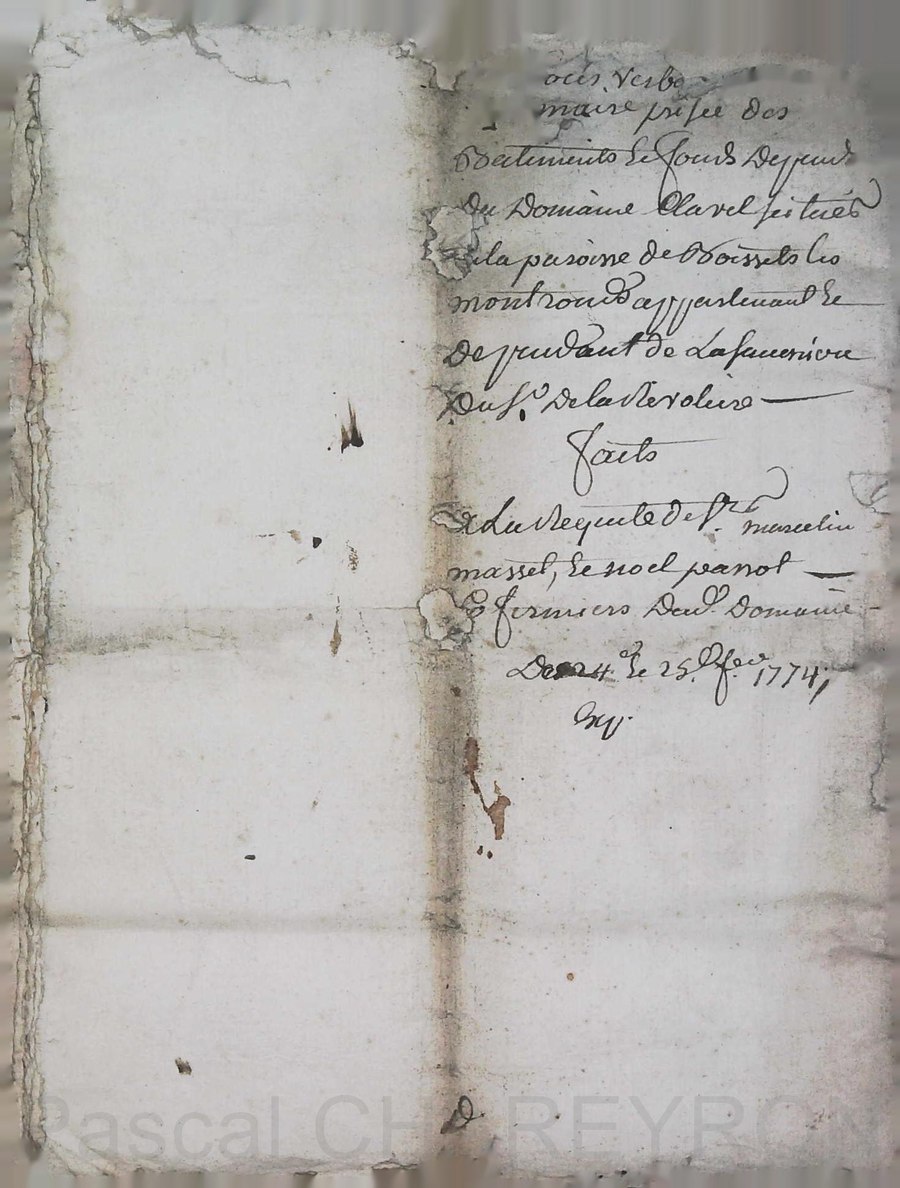 ocès verba
maire prisée des
Batiments et fonds depend
du Domaine Clavel scitués
a la paroisse de Boissets les
montronds appartenant et
dependant de La
du Sr. De la Revoliere
faits
a La Requete de Srs. marcelin
massel, et noel parrot
fermiers dud. Domaine
Des 24 et 25 1774,
Pascal CHAREYRON